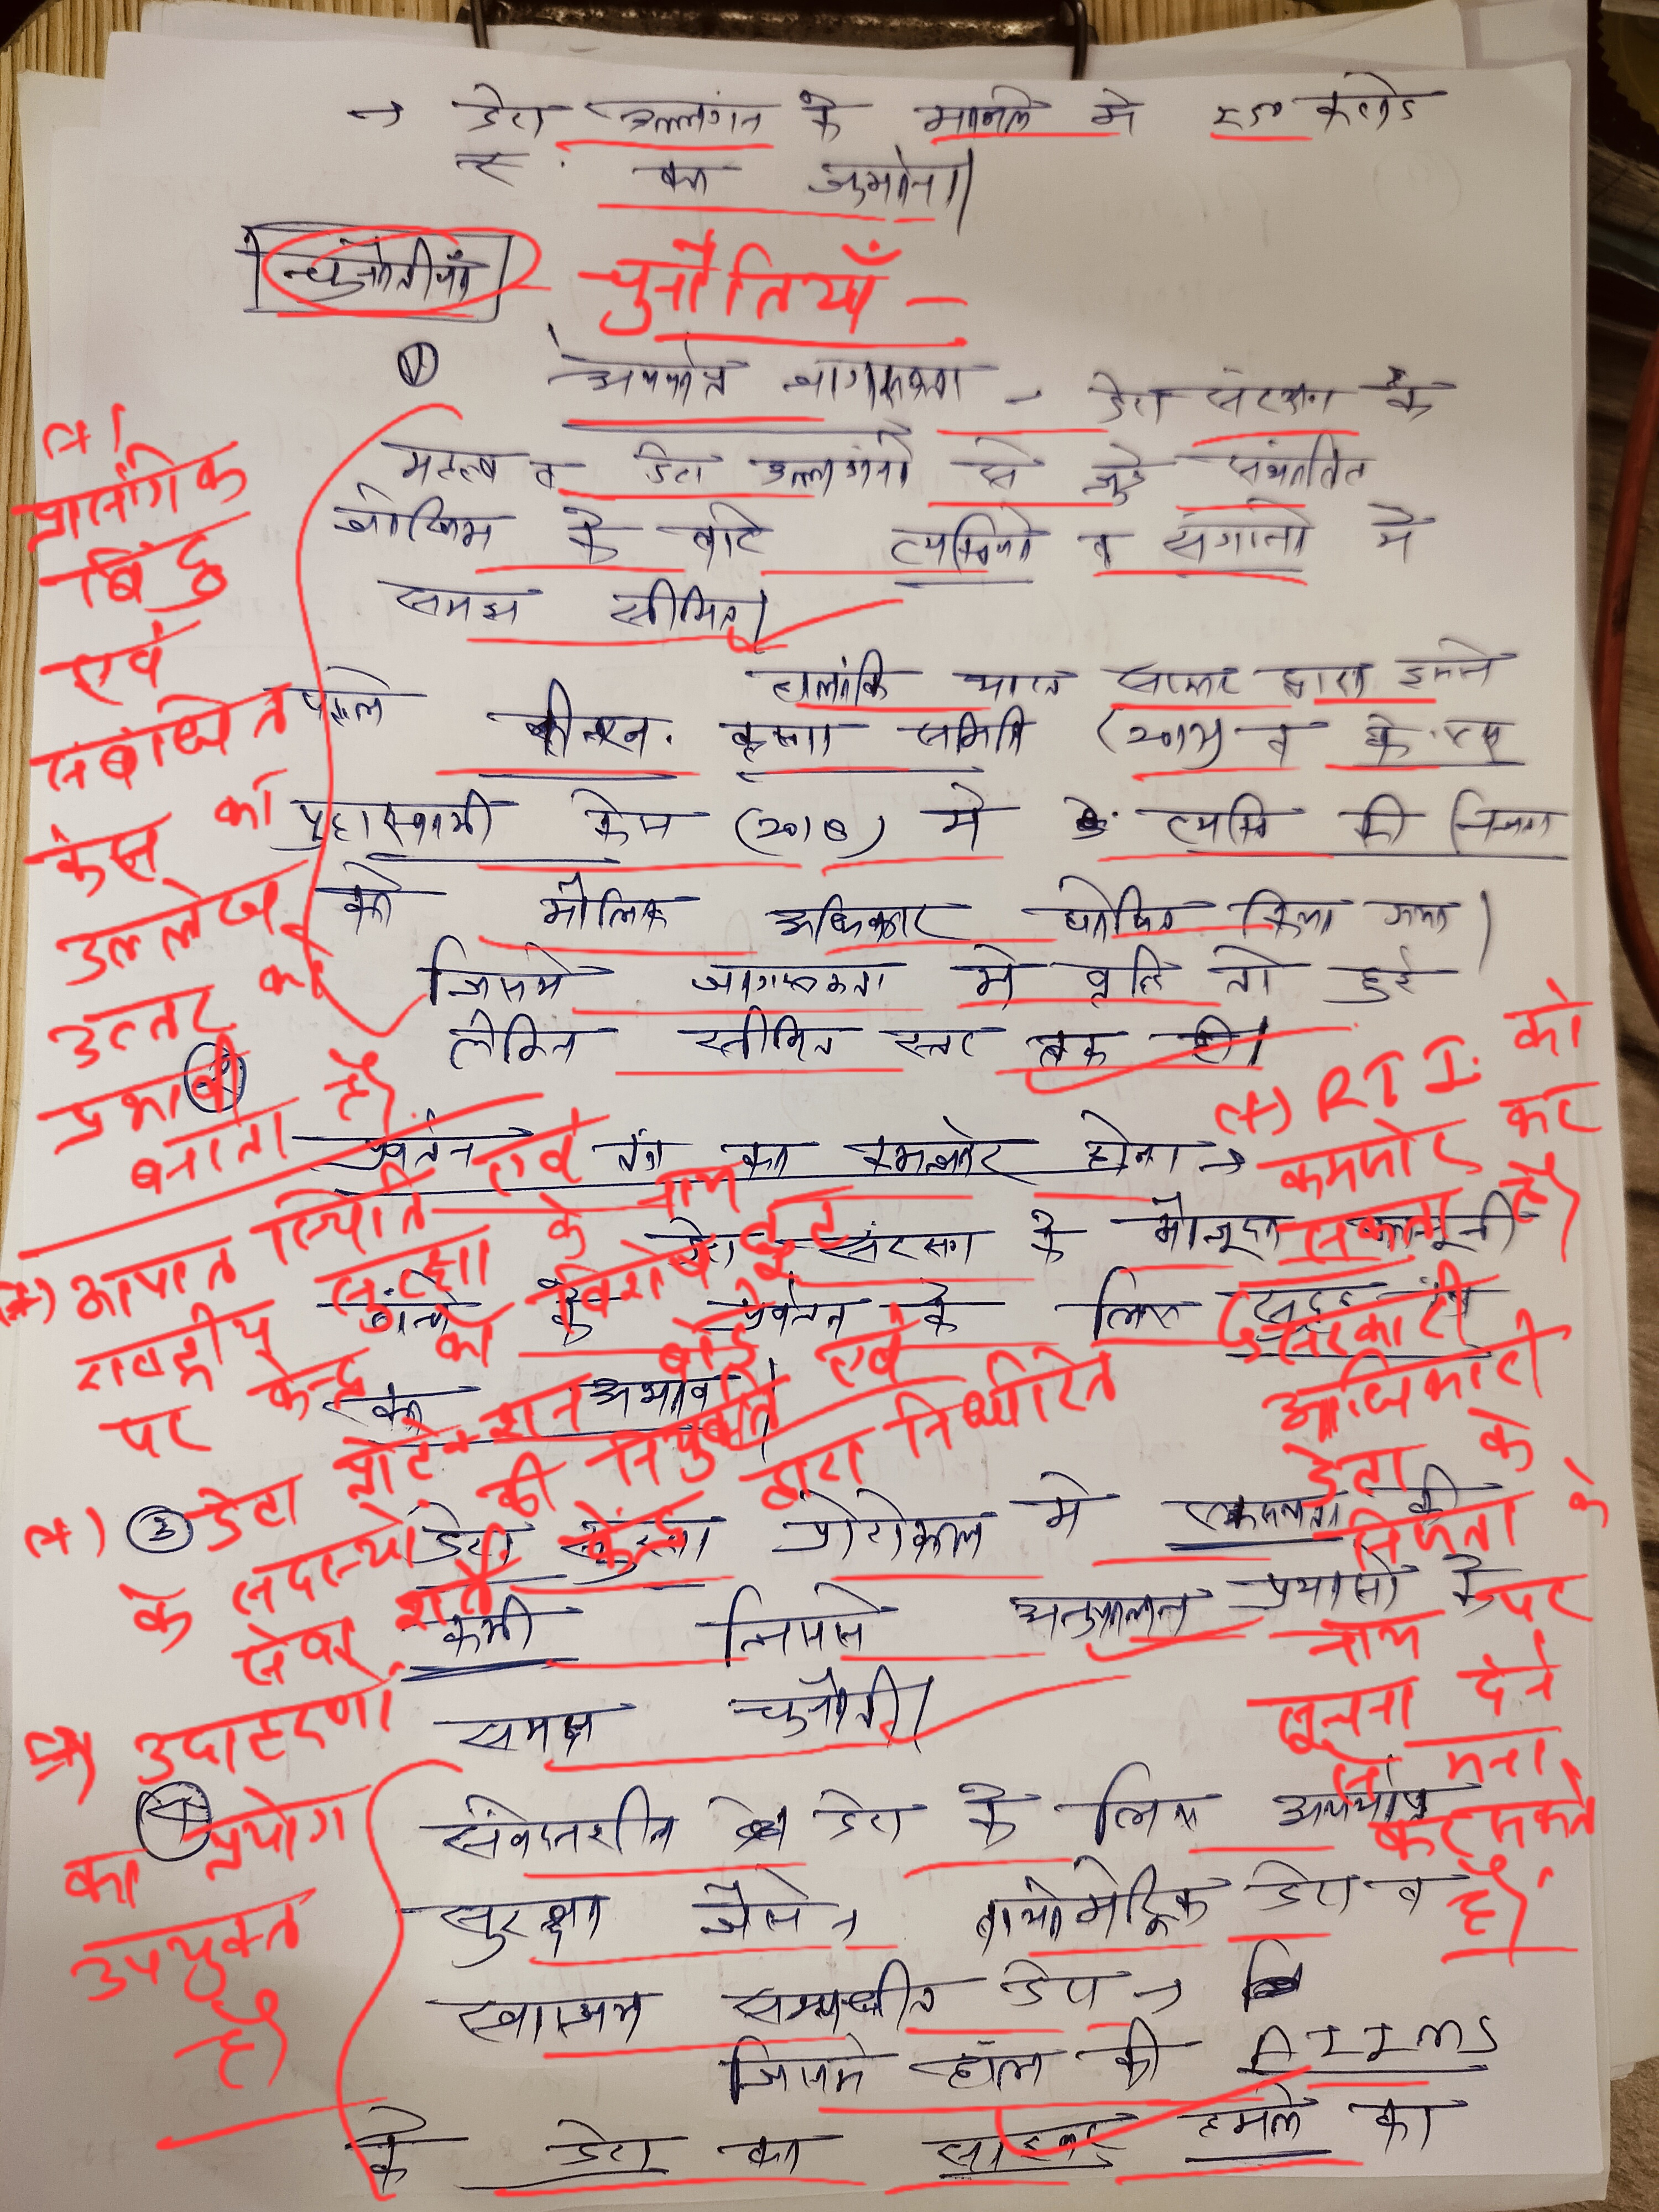 → डेटा उल्लंगन के मामले मे २५० करोड
रु. का जुर्माना।
चुनौतीयाँ
चुनौतियाँ -
① अपर्याप्त जागरूकता → डेटा संरक्षण के
महत्व व डेटा उल्लंगनो से जुडे संभावित
जोखिम के बारे व्यक्तियो व संगठनो मे
समझ सीमित।
हालांकि भारत सरकार द्वारा इससे
पहले बी.एन. कृष्णा समिति (2017) व के. एस
पुट्टास्वामी केस (2018) मे व्यक्ति की निजता
को मौलिक अधिकार घोषित किया गया।
जिससे जागरूकता मे वृद्धि तो हुई
लेकिन सीमित स्तर तक ही।
(+)
प्रासंगिक
बिंदु
एवं
संबंधित
केस का
उल्लेख
उत्तर को
प्रभावी
बनाता है।
② प्रवर्तन तंत्र का कमजोर होना →
डेटा संरक्षण के मौजूदा कानूनी
ढांचे के प्रवर्तन के लिए सुदृढ तंत्र
का अभाव।
(+) आपात स्थिति एवं
राष्ट्रीय सुरक्षा के नाम
पर केन्द्र को विशेष छूट
(+) RTI. को
कमजोर कर
सकता है।
सरकारी
अधिकारी
डेटा के
निजता के
नाम पर
सूचना देने
से मना
कर सकते
हैं।
(+) डेटा प्रोटेक्शन बोर्ड
के सदस्यो की नियुक्ति एवं
सेवा शर्तें केन्द्र द्वारा निर्धारित
③ डेटा सुरक्षा प्रोटोकॉल मे एकरूपता की
कमी जिससे अनुपालन प्रयासो के
समक्ष चुनौती।
④ संवेदनशील डेटा के लिए अपर्याप्त
सुरक्षा जैसे → बायोमेट्रिक डेटा व
स्वास्थ्य सम्बन्धीत डेटा →
जिसमे हाल की AIIMS
के डेटा का साइबर हमले का
उदाहरणों
का प्रयोग
उपयुक्त
है।